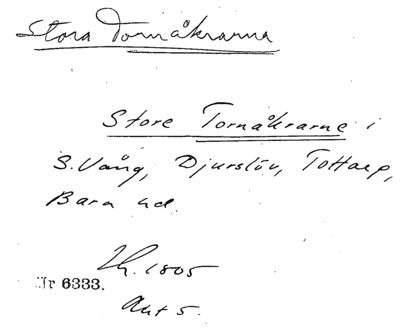 Stora Tornåkrarna
Store Tornåkrarne i
S. Vång, Djurslöv, Tottarp,
Bara hd.
1805
Nr 6333.
Akt 5.